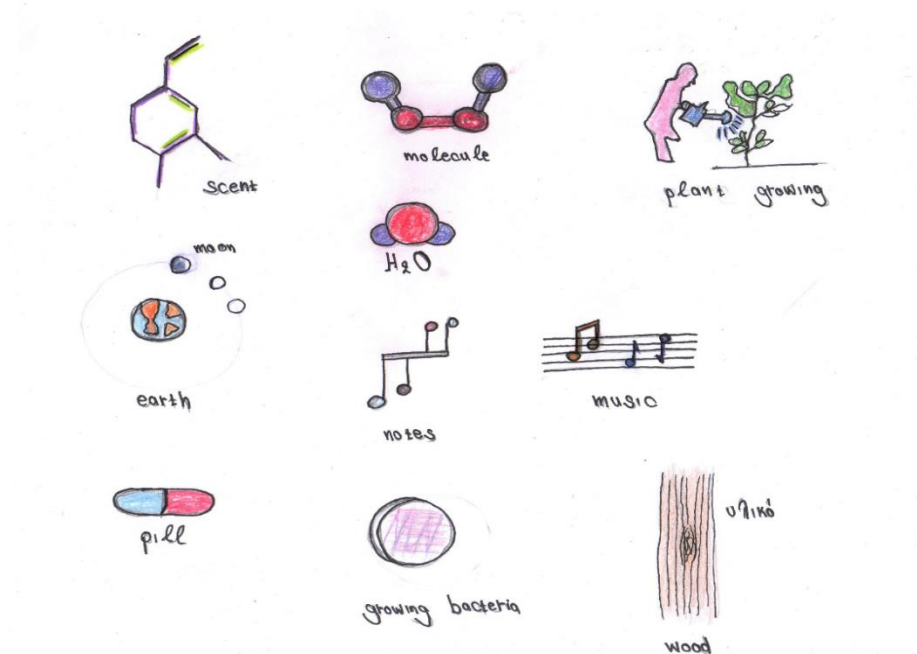 scent
molecule
plant growing
H₂O
moon
earth
notes
music
pill
growing bacteria
υλικό
wood